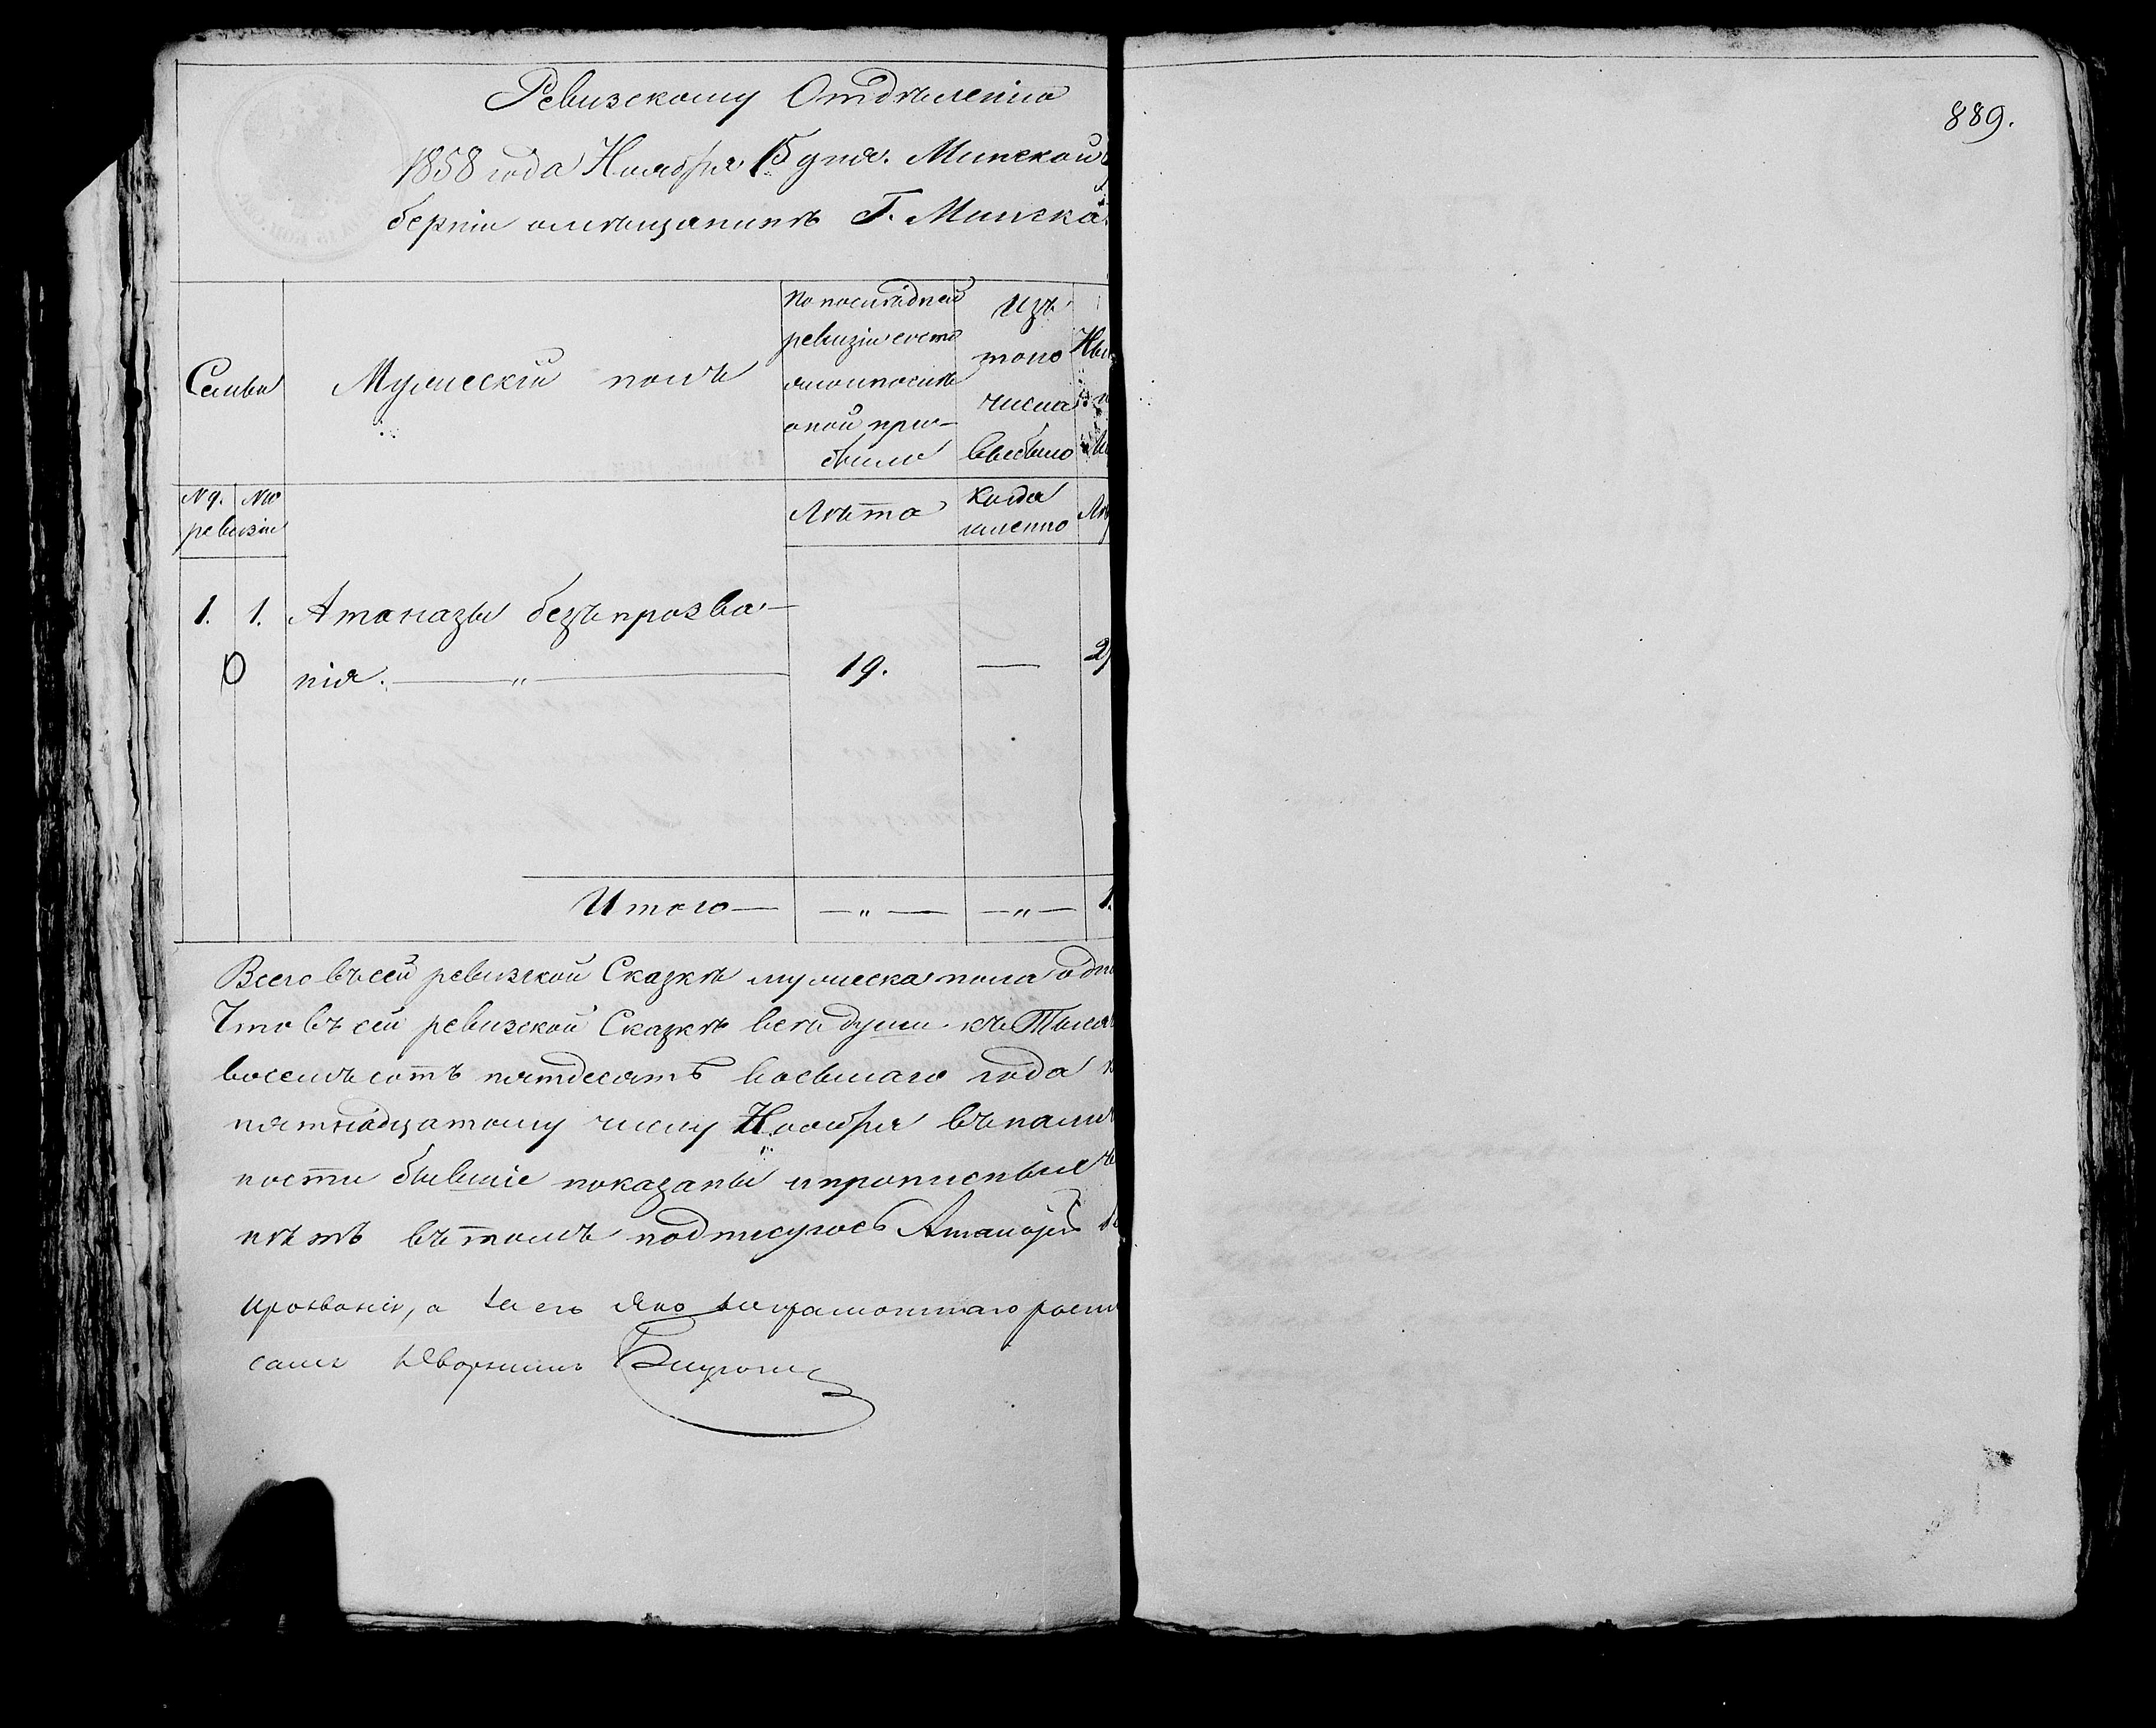 889.
Ревизскому Отдѣленію
1858 года Ноября 15 дня. Минской
берніи о мѣщанинѣ Г. Минска
Семьи
Мужескій полъ
По послѣдней
ревизіи состо
яло и послѣ
оной при-
было
Изъ
того
числа
выбыло
№ 9. № 10
ревизіи
Лѣта
Когда
именно
1. 1. Атаназы безъ прозва-
нія. — „ — 19. —
Итого — — „ — — „ — 1.
Всего въ сей ревизской Сказкѣ мужеска пола
Что въ сей ревизской Сказкѣ всѣ души къ
восемьсотъ пятдесятъ восьмаго года
пятнадцатому числу Ноября въ
ности бывшіе показаны и прописныхъ
нѣтъ въ томъ подписуюсь Атаназы
прозванія, а за его яко неграмотнаго
Дворянинъ